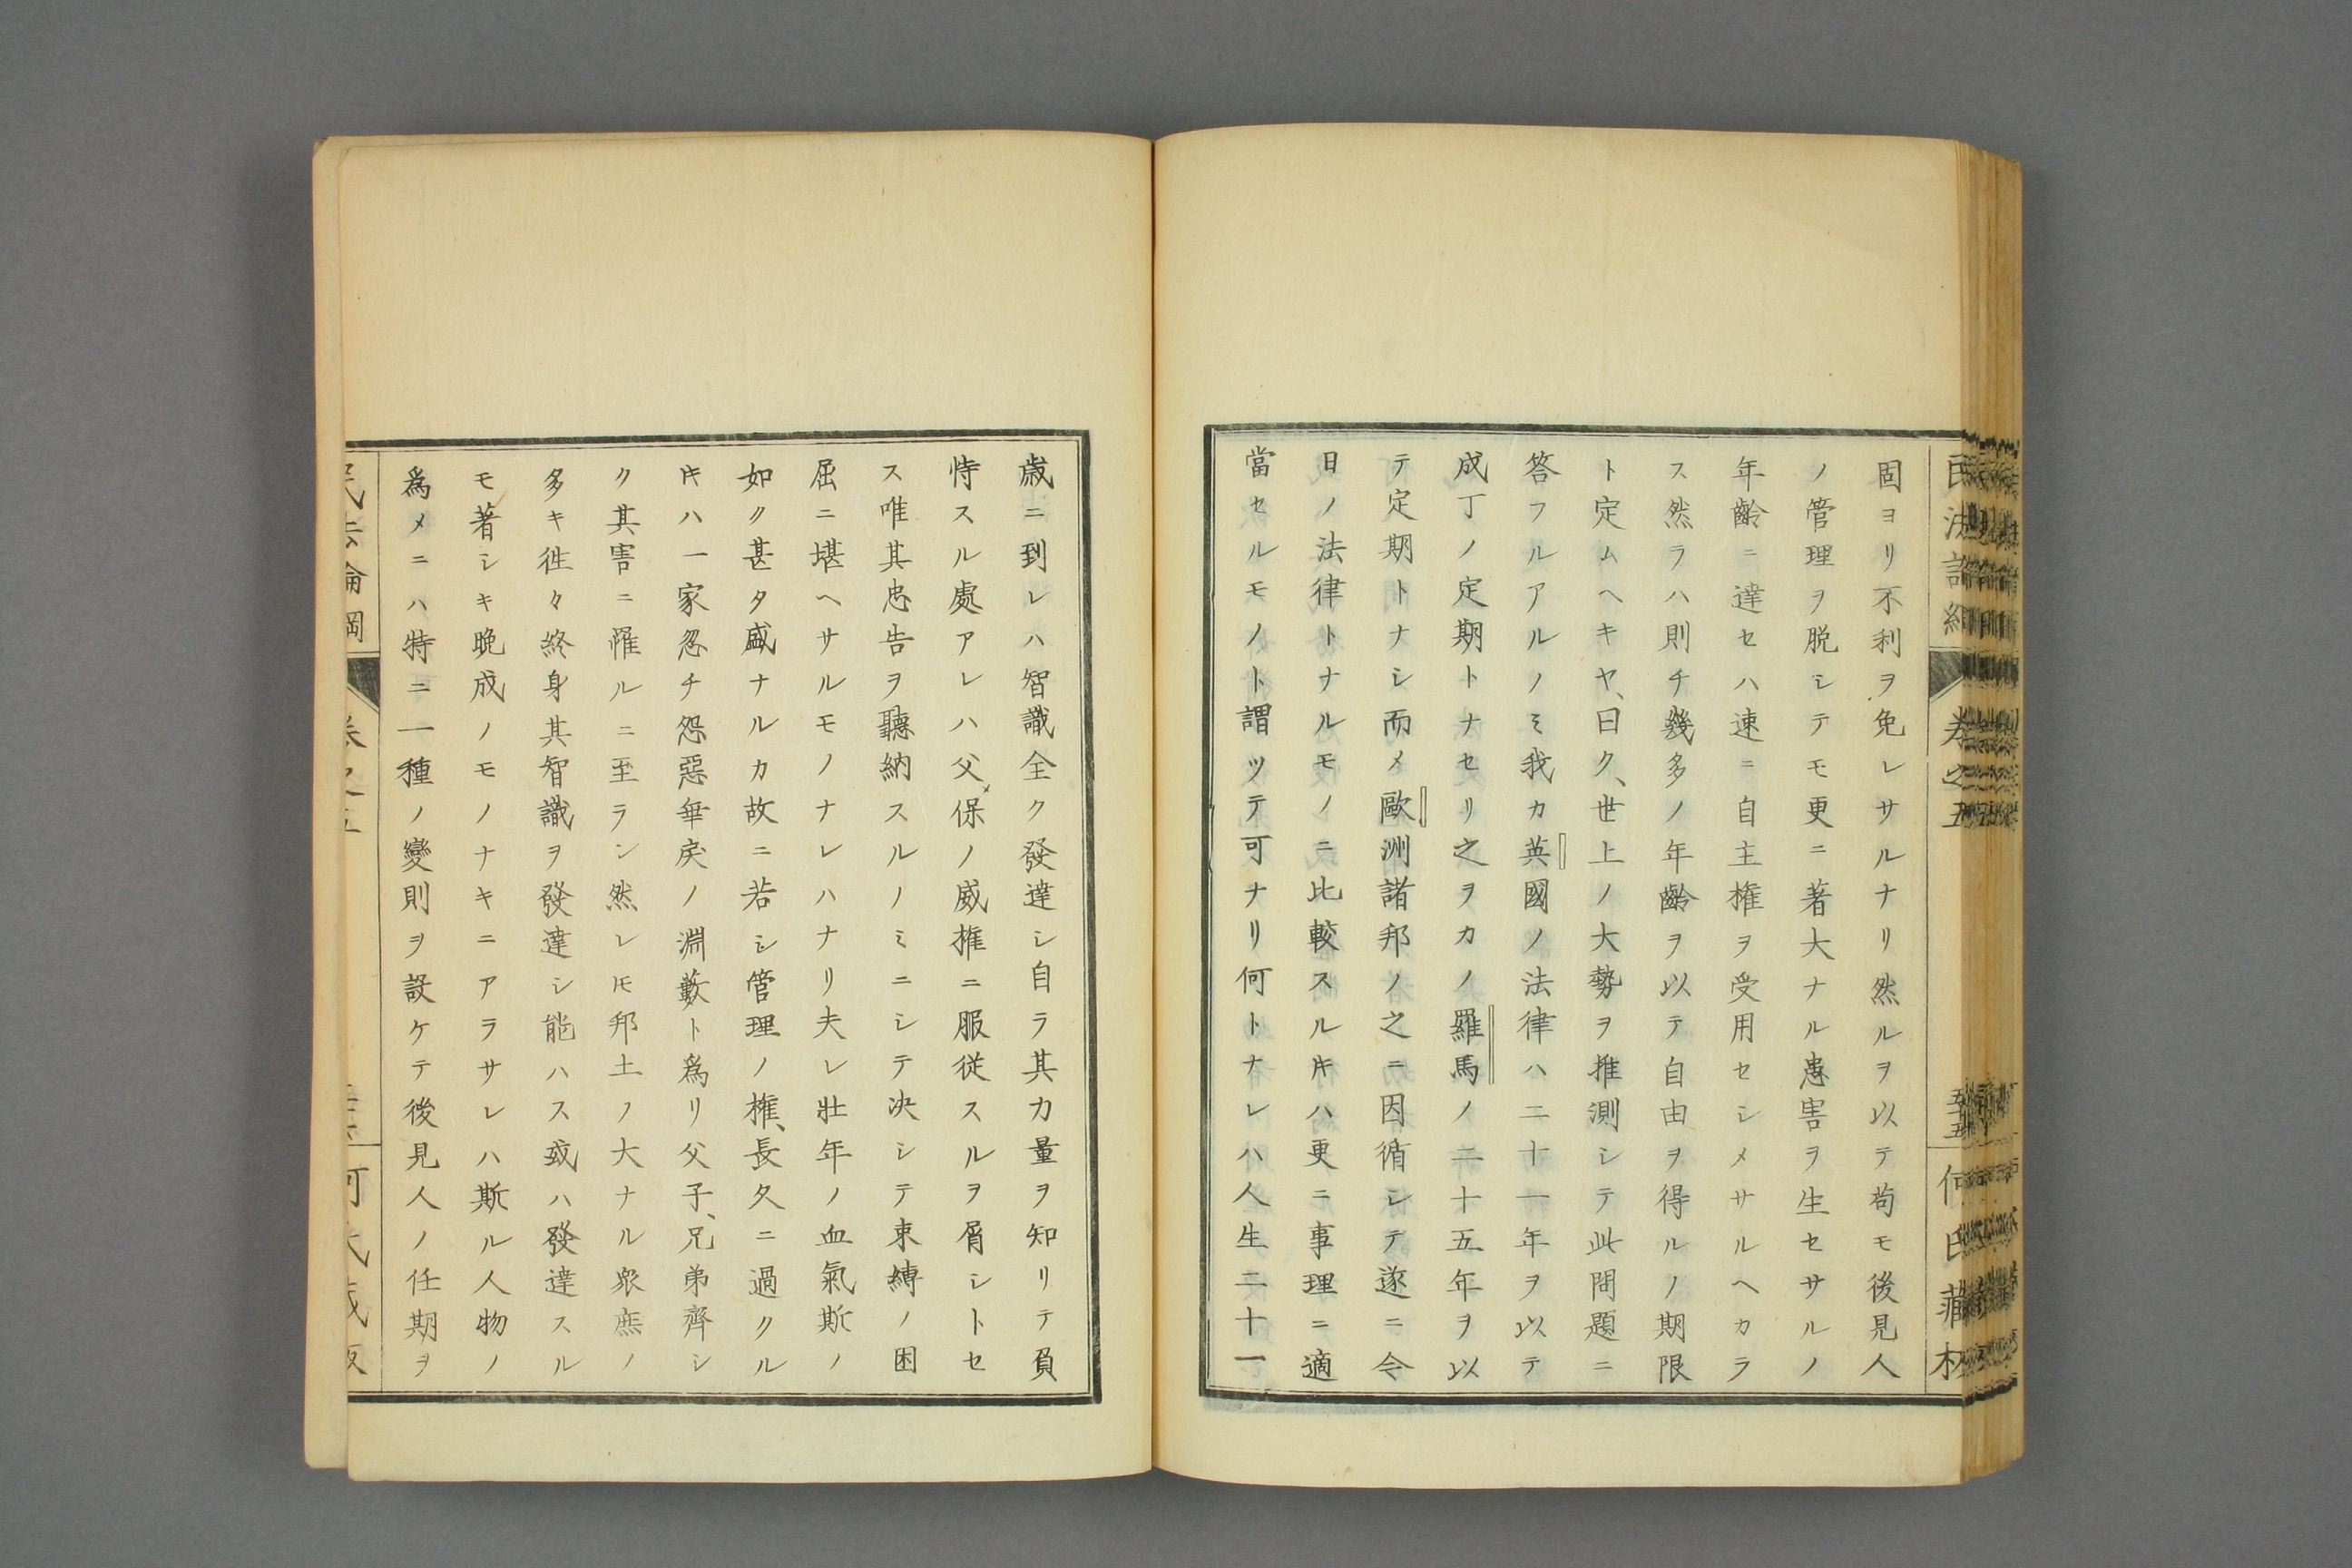 固ヨリ不利ヲ免レサルナリ然ルヲ以テ苟モ後見人
ノ管理ヲ脱シテモ更ニ著大ナル患害ヲ生セサルノ
年齡ニ達セハ速ニ自主権ヲ受用セシメサルヘカラ
ス然ラハ則チ幾多ノ年齡ヲ以テ自由ヲ得ルノ期限
ト定ムヘキヤ、曰ク、世上ノ大勢ヲ推測シテ此問題ニ
答フルアルノミ我カ英國ノ法律ハ二十一年ヲ以テ
成丁ノ定期トナセリ之ヲカノ羅馬ノ二十五年ヲ以
テ定期トナシ而メ歐洲諸邦ノ之ニ因循シテ遂ニ令
日ノ法律トナルモノニ比較スルㇳキハ更ニ事理ニ適
當セルモノト謂ツテ可ナリ何トナレハ人生二十一
歳ニ到レハ智識全ク發達シ自ラ其力量ヲ知リテ負
恃スル處アレハ父保ノ威権ニ服従スルヲ屑シトセ
ス唯其忠告ヲ聽納スルノミニシテ决シテ束縛ノ困
屈ニ堪ヘサルモノナレハナリ夫レ壮年ノ血氣斯ノ
如ク甚タ盛ナルカ故ニ若シ管理ノ権、長久ニ過クル
ㇳキハ一家忽チ怨惡乖戾ノ淵藪ト爲リ父子、兄弟齊シ
ク其害ニ罹ルニ至ラン然レㇳモ邦土ノ大ナル衆庶ノ
多キ徃々終身其智識ヲ發達シ能ハス或ハ發達スル
モ著シキ晩成ノモノナキニアラサレハ斯ル人物ノ
爲メニハ特ニ一種ノ變則ヲ設ケテ後見人ノ任期ヲ